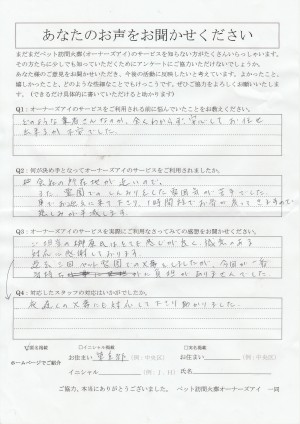 あなたのお声をお聞かせください
まだまだペット訪問火葬(オーナーズアイ)のサービスを知らない方がたくさんいらっしゃいます。
その方たちに少しでも知っていただくためにアンケートにご協力いただけないでしょうか。
あなた様のご意見をお聞かせいただき、今後の活動に反映したいと考えています。よかったこと、
嬉しかったこと、どのような些細なことでもけっこうです。ぜひご協力をよろしくお願いいたしま
す。(できるだけ具体的に書いていただけると助かります)
Q1:オーナーズアイのサービスをご利用される前に悩んでいたことをお教えください。
どのような業者さんなのか、全くわからず安心してお任せ
出来るか不安でした。
Q2:何が決め手となってオーナーズアイのサービスをご利用されましたか。
会社の所在地が近いので。
また、霊園での しんみりとした雰囲気が苦手でした。
車でお迎えに来て下さり、1時間程でお骨が戻ってきますので、
悲しみが半減します。
Q3:オーナーズアイのサービスを実際にご利用なさってみての感想をお聞かせください。
ご担当の 様もとても感じが良く誠意のある
対応に感謝しております。
過去に ペット霊園での火葬をしましたが、今回が一番
気持ち 的に負担がありませんでした。
Q4:対応したスタッフの対応はいかがでしたか。
対応して下さり助かりました。
匿名掲載
イニシャル掲載
実名掲載
ホームページでご紹介
お住まい
(例:中央区)
お住まい
(例:中央区)
イニシャル
(例:J.H)
氏名
ご協力、本当にありがとうございました。 ペット訪問火葬オーナーズアイ 一同